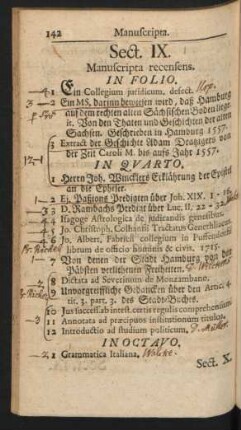 142 Manuscripta.
Sect. IX.
Manuscripta recensens.
IN FOLIO.
1 Ein Collegium juridicum, defect.
2 Ein MS. darinn bewiesen wird, daß Hamburg
auf dem rechten alten Sächsischen Boden liege
it. Von den Thaten und Geschichten der alten
Sachsen. Geschrieben in Hamburg 1557.
3 Extract der Geschichte Adam Tratzigers von
der Zeit Caroli M. bis aufs Jahr 1557.
IN QVARTO.
1 Herrn Joh. Wincklers Erklährung der Epistel
an die Epheser.
2 El. Predigten über Joh. XIX. 1
3 D. Rambachs Predigt über Luc. II. 22 - 32
4 Isagoge Astrologica de judicandis genesibus.
5 Jo. Christoph. Tractatus Generall
6 Jo. Albert. Fabricii collegium in Pufendorfii
librum de officio hominis & civis. 1715.
7 Von denen der Stadt Hamburg von den
Päbsten verliehenen Freyheiten.
8 Dictata ad Severinum de Monzambano.
9 Unvorgreiffliche Gedancken über den Artic. 4
tit. 3. part. 3. des Stadt-Buches.
10 Jus success. ab intest. certis regulis comprehensum
11 Annotata ad præcipuos institutionum titulos.
12 Introductio ad studium politicum.
IN OCTAVO.
1 Grammatica Italiana.
Sect. X.